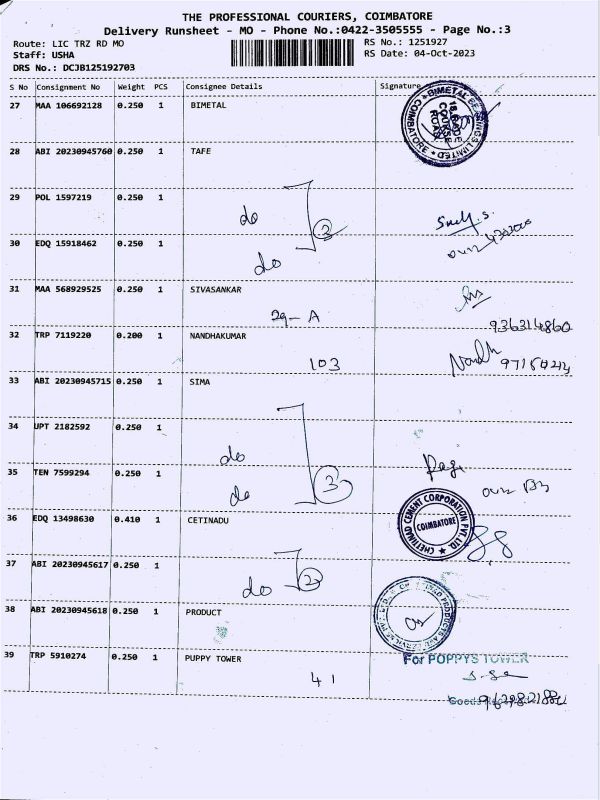 THE PROFESSIONAL COURIERS, COIMBATORE
Delivery Runsheet - MO - Phone No.:0422-3505555 - Page No.:3
Route: LIC TRZ RD MO
RS No.: 1251927
Staff: USHA
RS Date: 04-Oct-2023
DRS No.: DCJB125192703
S No Consignment No Weight PCS Consignee Details Signature
27 MAA 106692128 0.250 1 BIMETAL
BIMETAL BEARINGS LIMITED COIMBATORE
28 ABI 20230945760 0.250 1 TAFE
29 POL 1597219 0.250 1
do
3
30 EDQ 15918462 0.250 1
do
31 MAA 568929525 0.250 1 SIVASANKAR
29-A
936314860
32 TRP 7119220 0.200 1 NANDHAKUMAR
103
33 ABI 20230945715 0.250 1 SIMA
34 UPT 2182592 0.250 1
do
35 TEN 7599294 0.250 1
do
3
36 EDQ 13498630 0.410 1 CETINADU
CHETTINAD CEMENT CORPORATION PVT.LTD. COIMBATORE
37 ABI 20230945617 0.250 1
do
2
38 ABI 20230945618 0.250 1 PRODUCT
39 TRP 5910274 0.250 1 PUPPY TOWER
41
For POPPYS TOWER